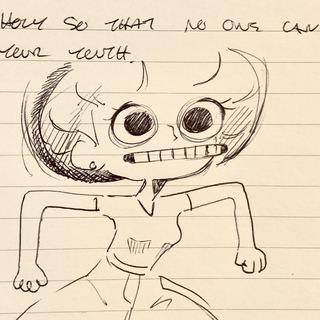 HOLY SO THAT NO ONE CAN
YOUR YOUTH.